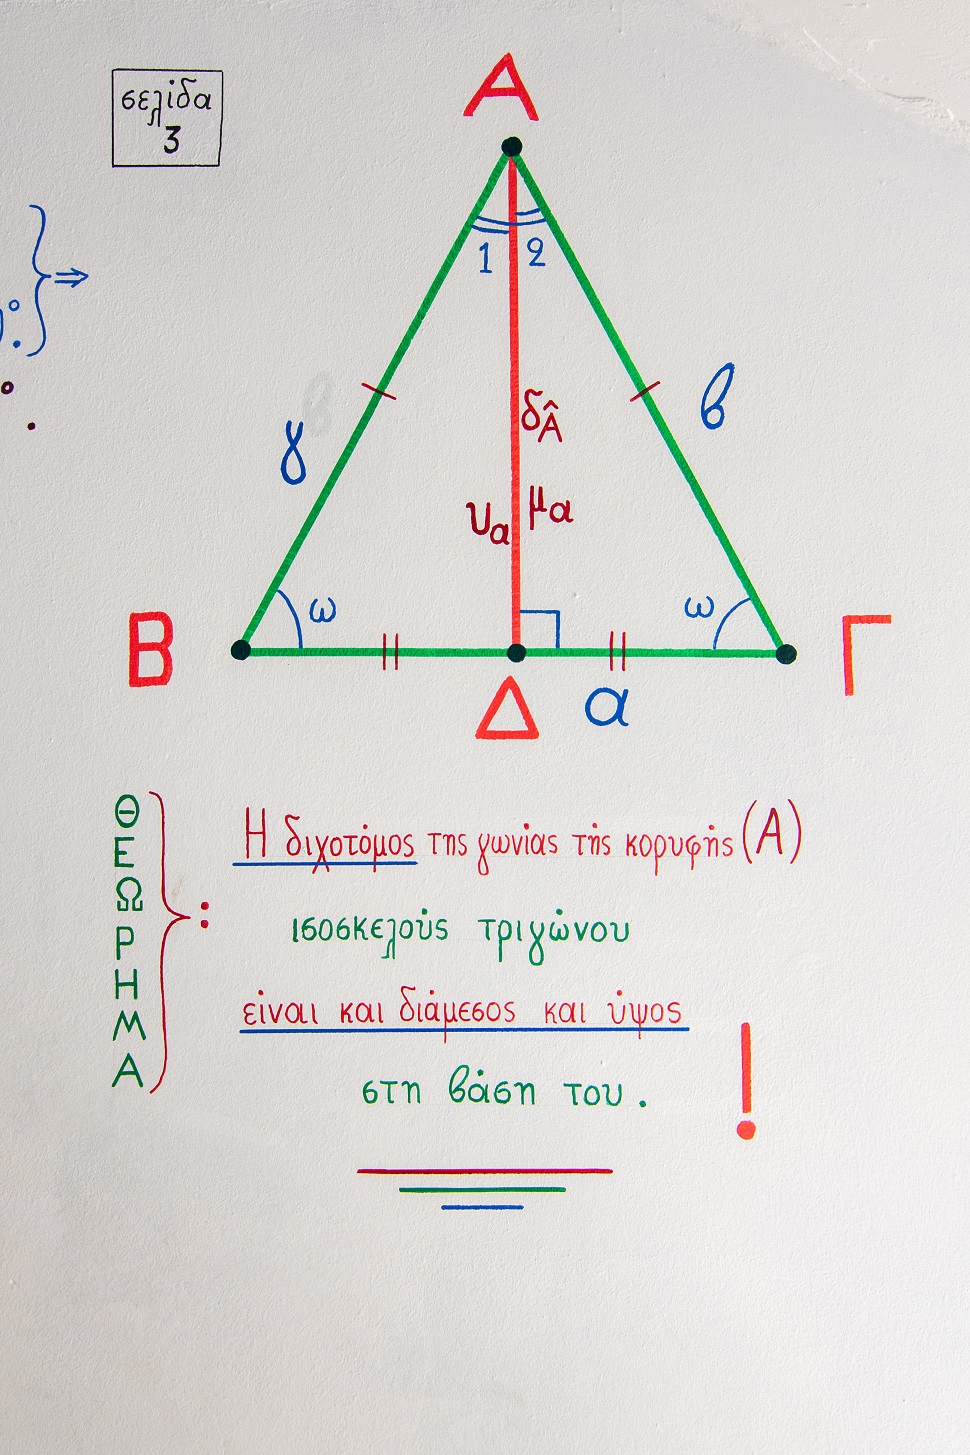 σελίδα
3
Α
}⇒
1 2
β
δÂ
γ
υα μα
ω ω
Β Γ
Δ α
ΘΕΩΡΗΜΑ } :
Η διχοτόμος της γωνίας τής κορυφής (Α)
ισοσκελούς τριγώνου
είναι και διάμεσος και ύψος
στη βάση του . !